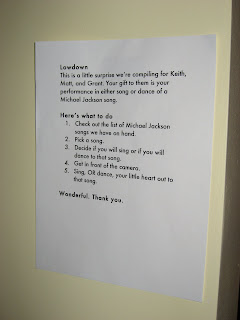 Lowdown
This is a little surprise we're compiling for Keith,
Matt, and Grant. Your gift to them is your
performance in either song or dance of a
Michael Jackson song.
Here's what to do
1. Check out the list of Michael Jackson
songs we have on hand.
2. Pick a song.
3. Decide if you will sing or if you will
dance to that song.
4. Get in front of the camera.
5. Sing, OR dance, your little heart out to
that song.
Wonderful. Thank you.